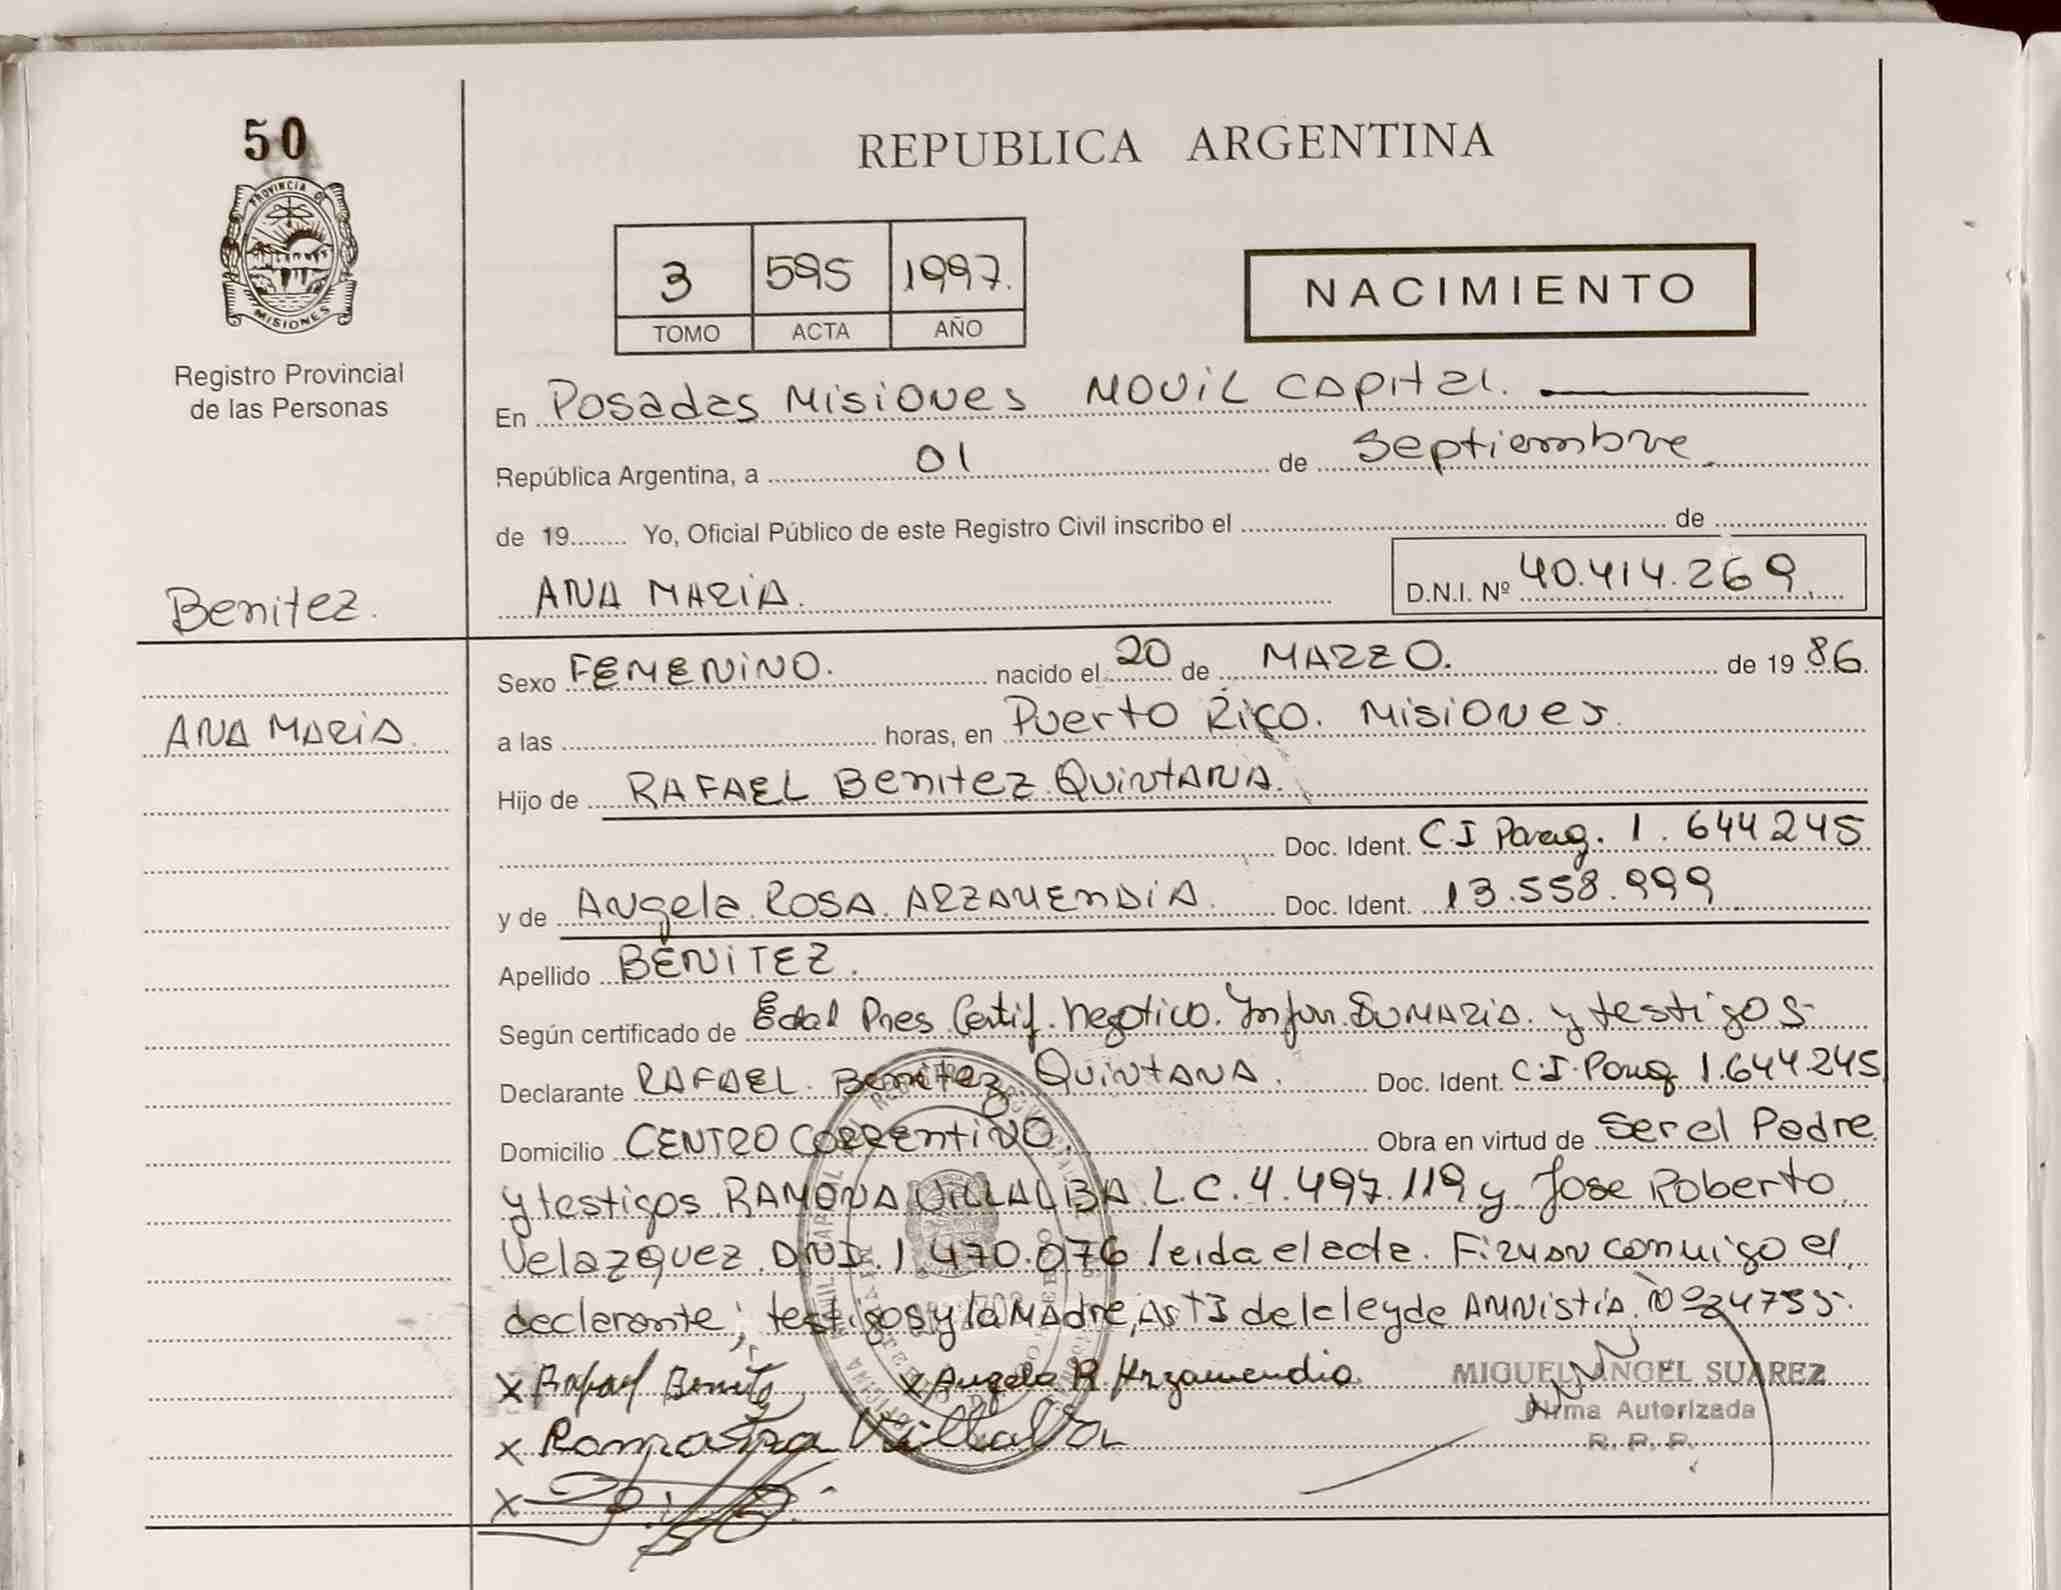 50
REPUBLICA ARGENTINA
PROVINCIA DE
MISIONES
3 595 1997.
TOMO ACTA AÑO
NACIMIENTO
Registro Provincial
de las Personas
En Posadas Misiones Movil Capital.
República Argentina, a 01 de Septiembre
de 19 Yo, Oficial Público de este Registro Civil inscribo el de
Benitez. ANA MARIA. D.N.I. Nº 40.414.269
Sexo FEMENINO. nacido el 20 de MARZO. de 19 86.
ANA MARIA a las horas, en Puerto Rico. Misiones.
Hijo de RAFAEL Benitez Quintana.
Doc. Ident. C.I Parag. 1.644245
y de Angela Rosa ARZAMENDIA. Doc. Ident. 13.558.999
Apellido BENITEZ.
Según certificado de Edad Pres. Certif. negativo. Infor. SUMARIA. y testigos
Declarante RAFAEL. Benitez Quintana. Doc. Ident. C.I. Parag 1.644.245
Domicilio CENTRO CORRENTINO. Obra en virtud de Ser el Padre
y testigos RAMONA VILLALBA L.C. 4.497.119 y Jose Roberto
Velazquez DNI. 1.470.076 leida el acta. Firman conmigo el
declarante, testigos y la Madre, de la ley de AMNISTIA. Nº
x Rafael Benitez x Angela R Arzamendia MIGUEL ANGEL SUAREZ
Firma Autorizada
x Villalba R. P. P.
x